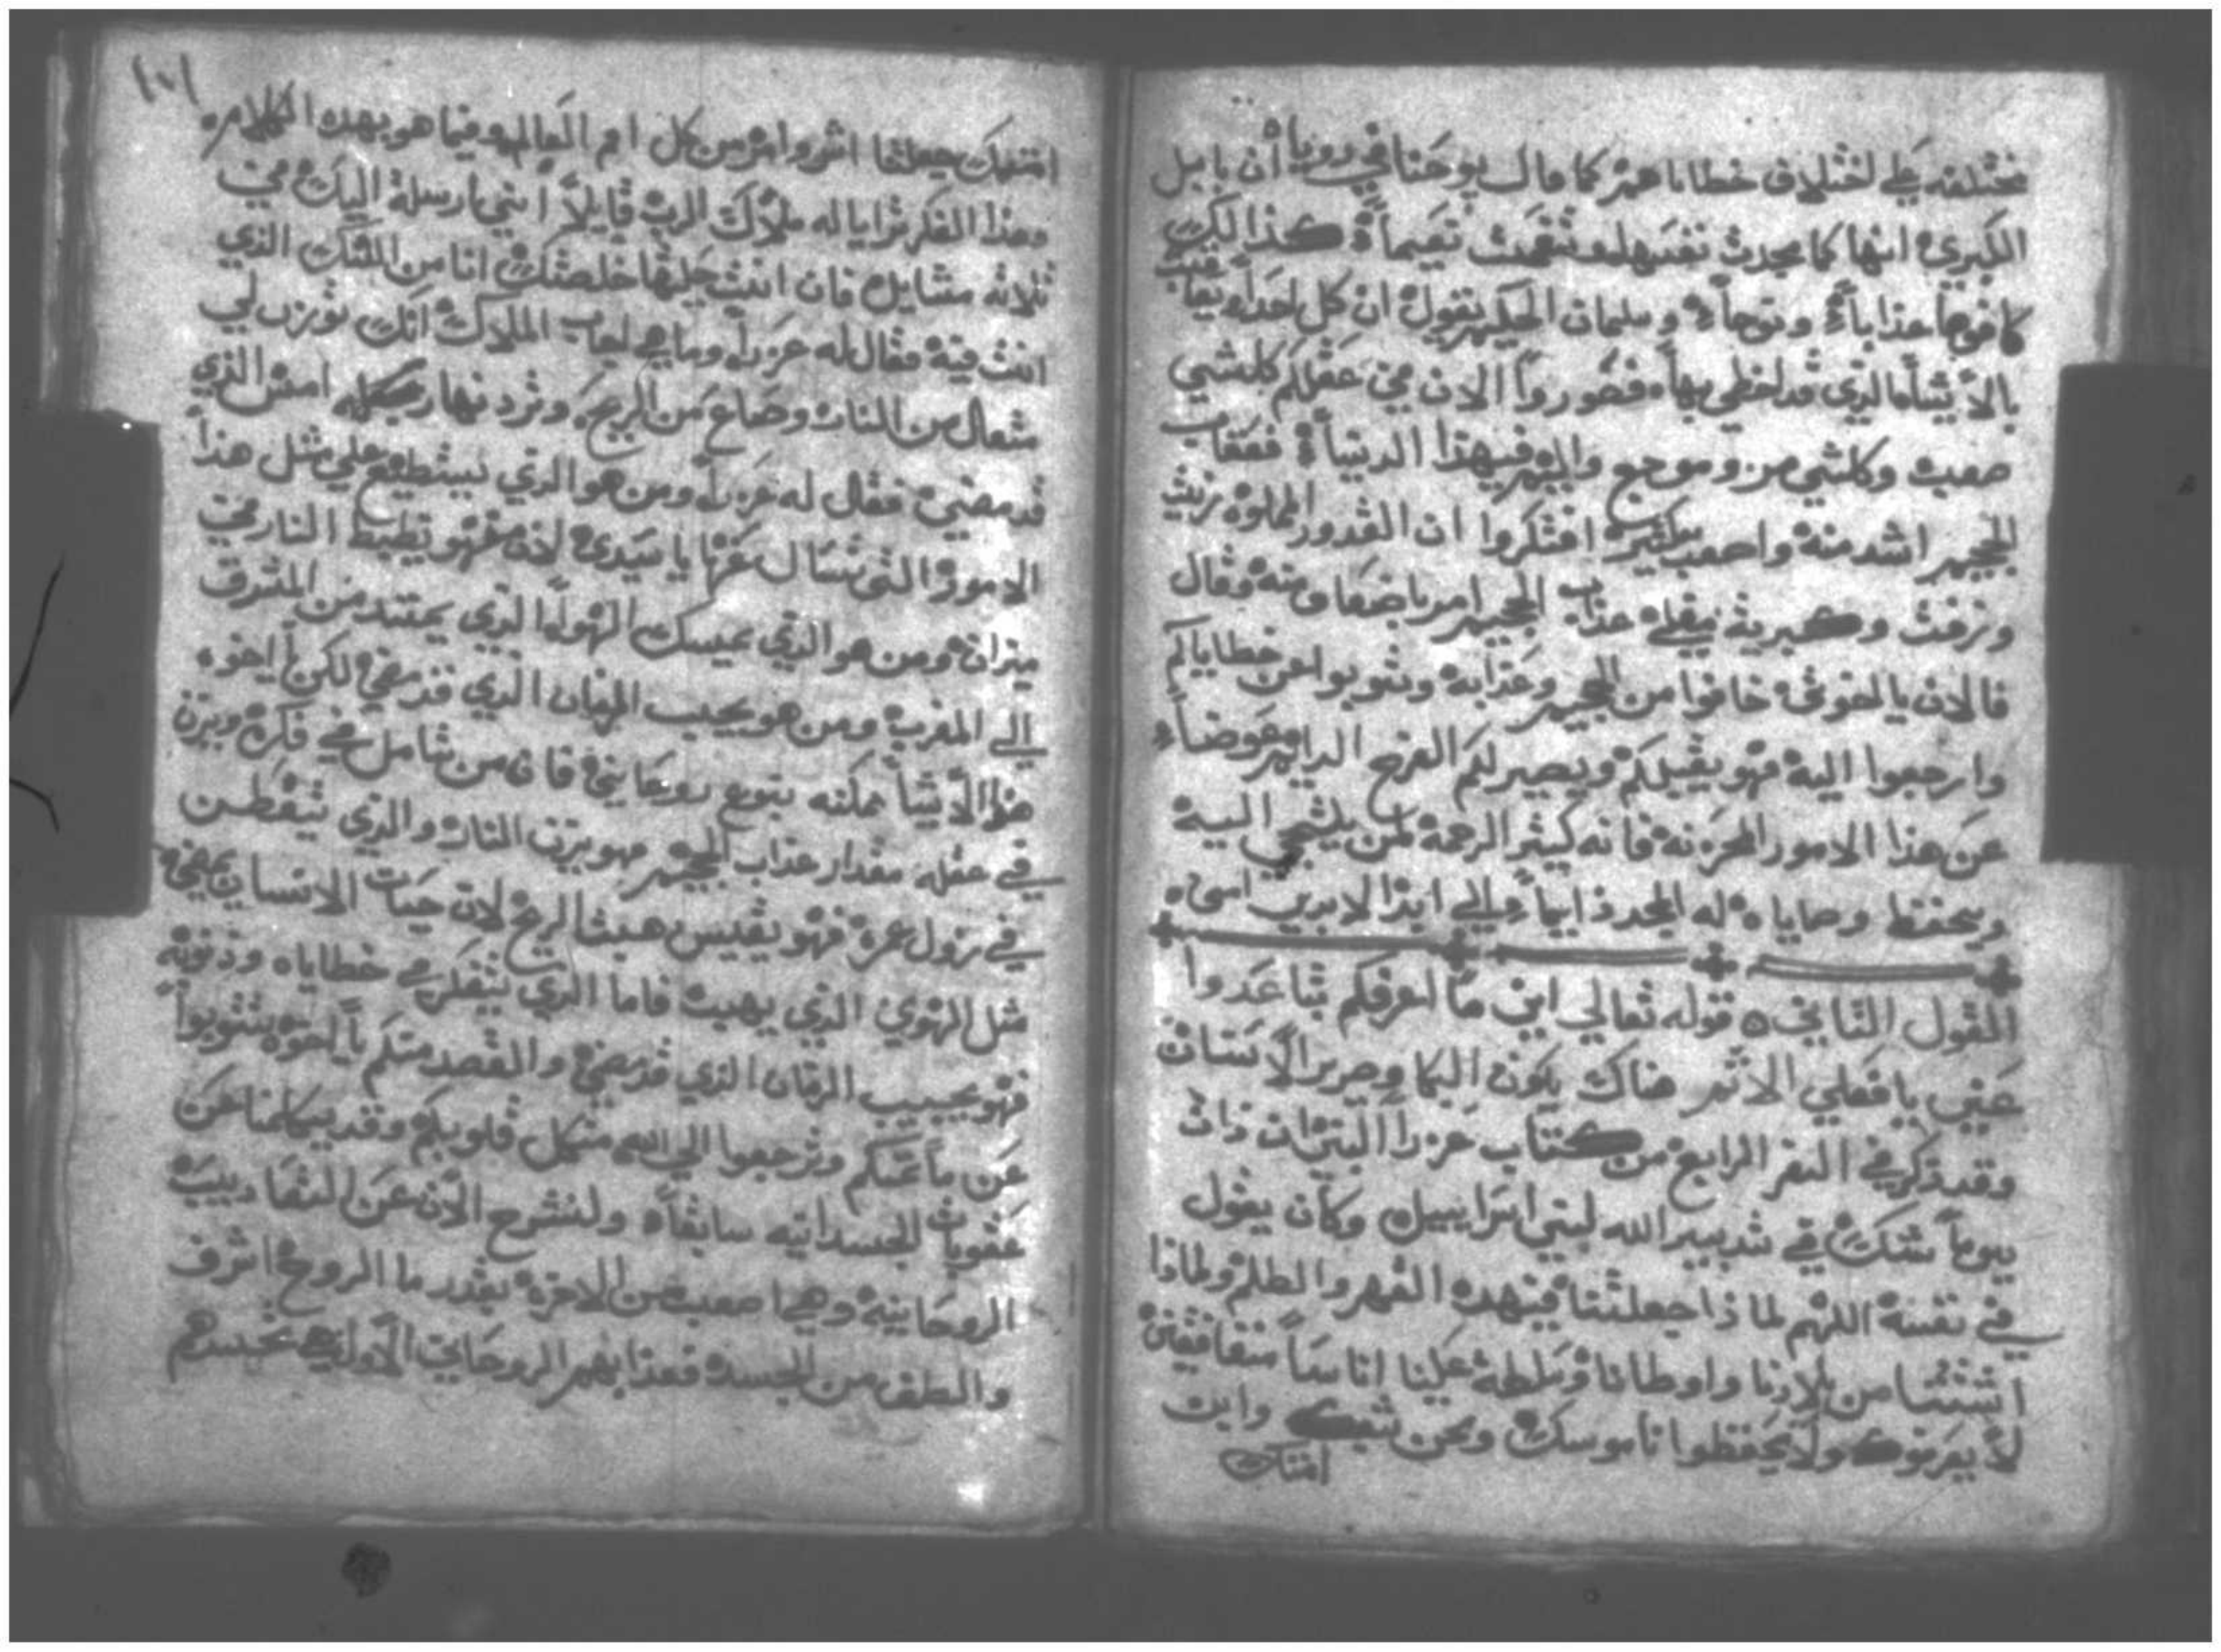 مختلفه علي لختلاف خطاياهم كما قال يوحنا في روياه ان بابل
الكبري انها كما مجدت نفسها وتنعمت نعيماً كذالك
كافوها عذاباً ونوحاً وسليمان الحكيم يقول ان كل احداً يعاقب
بالأشيا الذي قد اخطي بها فصوروا الان في عقلكم كلشي
صعب وكلشي مر وموجع واليم في هذا الدنيا فعقاب
الجحيم اشد منه واصعب بكثير افتكروا ان القدور المملوه زيت
وزفت وكبريت يغلي عذاب الجحيم امر باضعاف منه وقال
فالان يا لخوتي خافوا من الجحيم وعذابه وتوبوا عن خطاياكم
وارجعوا اليه فهو يقبلكم ويصير لكم الفرح الدايم عوضاً
عن هذا الامور المحزنه فانه كيثر الرحمة لمن يلتجي اليه
ويحفظ وصاياه له المجد دايماً الي ابد الابدين امين
القول التاني قوله تعالي اني ما اعرفكم تباعدوا
عني يا فعلي الاثم هناك يكون البكا وصرير الاسنان
وقد ذكر في السفر الرابع من كتاب عزرا البني ان ذات
يوماً شك في تدبير الله لبني اسراييل وكان يقول
في نفسه اللهم لماذا جعلتنا في هذه القهر والظلم ولماذا
اشتتنا من بلادنا واوطاننا وسلطة علينا اناساً منافقين
لا يعرفوك ولا يحفظوا ناموسك ونحن شعبك واين
امتك
١٠١
امتك جعلتنا اشر وامر من كل امم العالم وفيما هو بهده الكلام
وهذا الفكر ترايا له ملاك الرب قايلاً انني ارسلة اليك في
ثلاثه مسايل فان انت حليتها خلصتك انا من الشك الذي
انت فيه فقال له عزرا وما هي لجاب الملاك انك توزن لي
شعال من النار وصاع من الريح وترد نهار مكمله امس الذي
قد مضي فقال له عزرا ومن هو الذي يستطيع علي مثل هذا
الامور التي تسال عنها يا سيدي لان من هو يظبط النار في
ميزان ومن هو الذي يمسك الهوا الذي يمتد من المشرق
الي المغرب ومن هو يجيب الزمان الذي قد مضي لكن يا اخوه
هذا الأشيا ممكنه بنوع روحاني فان من تامل في فكره ويزن
في عقله مقدار عذاب الجحيم فهو يزن النار والذي يتفطن
في زول عمره فهو يقيس هبت الريح لان حيات الانسان تمضي
مثل الهوي الذي يهب فاما الذي يتفكر في خطاياه وذنوبه
فهو يجيب الزمان الذي قد مضي والقصد منكم يا لخوه تتوبوا
عن ما عملتم وترجعوا الي الله من كل قلوبكم وقد تكلمنا عن
عقوبات الجسدانيه سابقاً ولنشرح الان عن القاديب
الروحانية وهي اصعب من الاخره بقدر ما الروح اشرف
والطف من الجسد فعذابهم الروحاني الأول هي نحبسهم